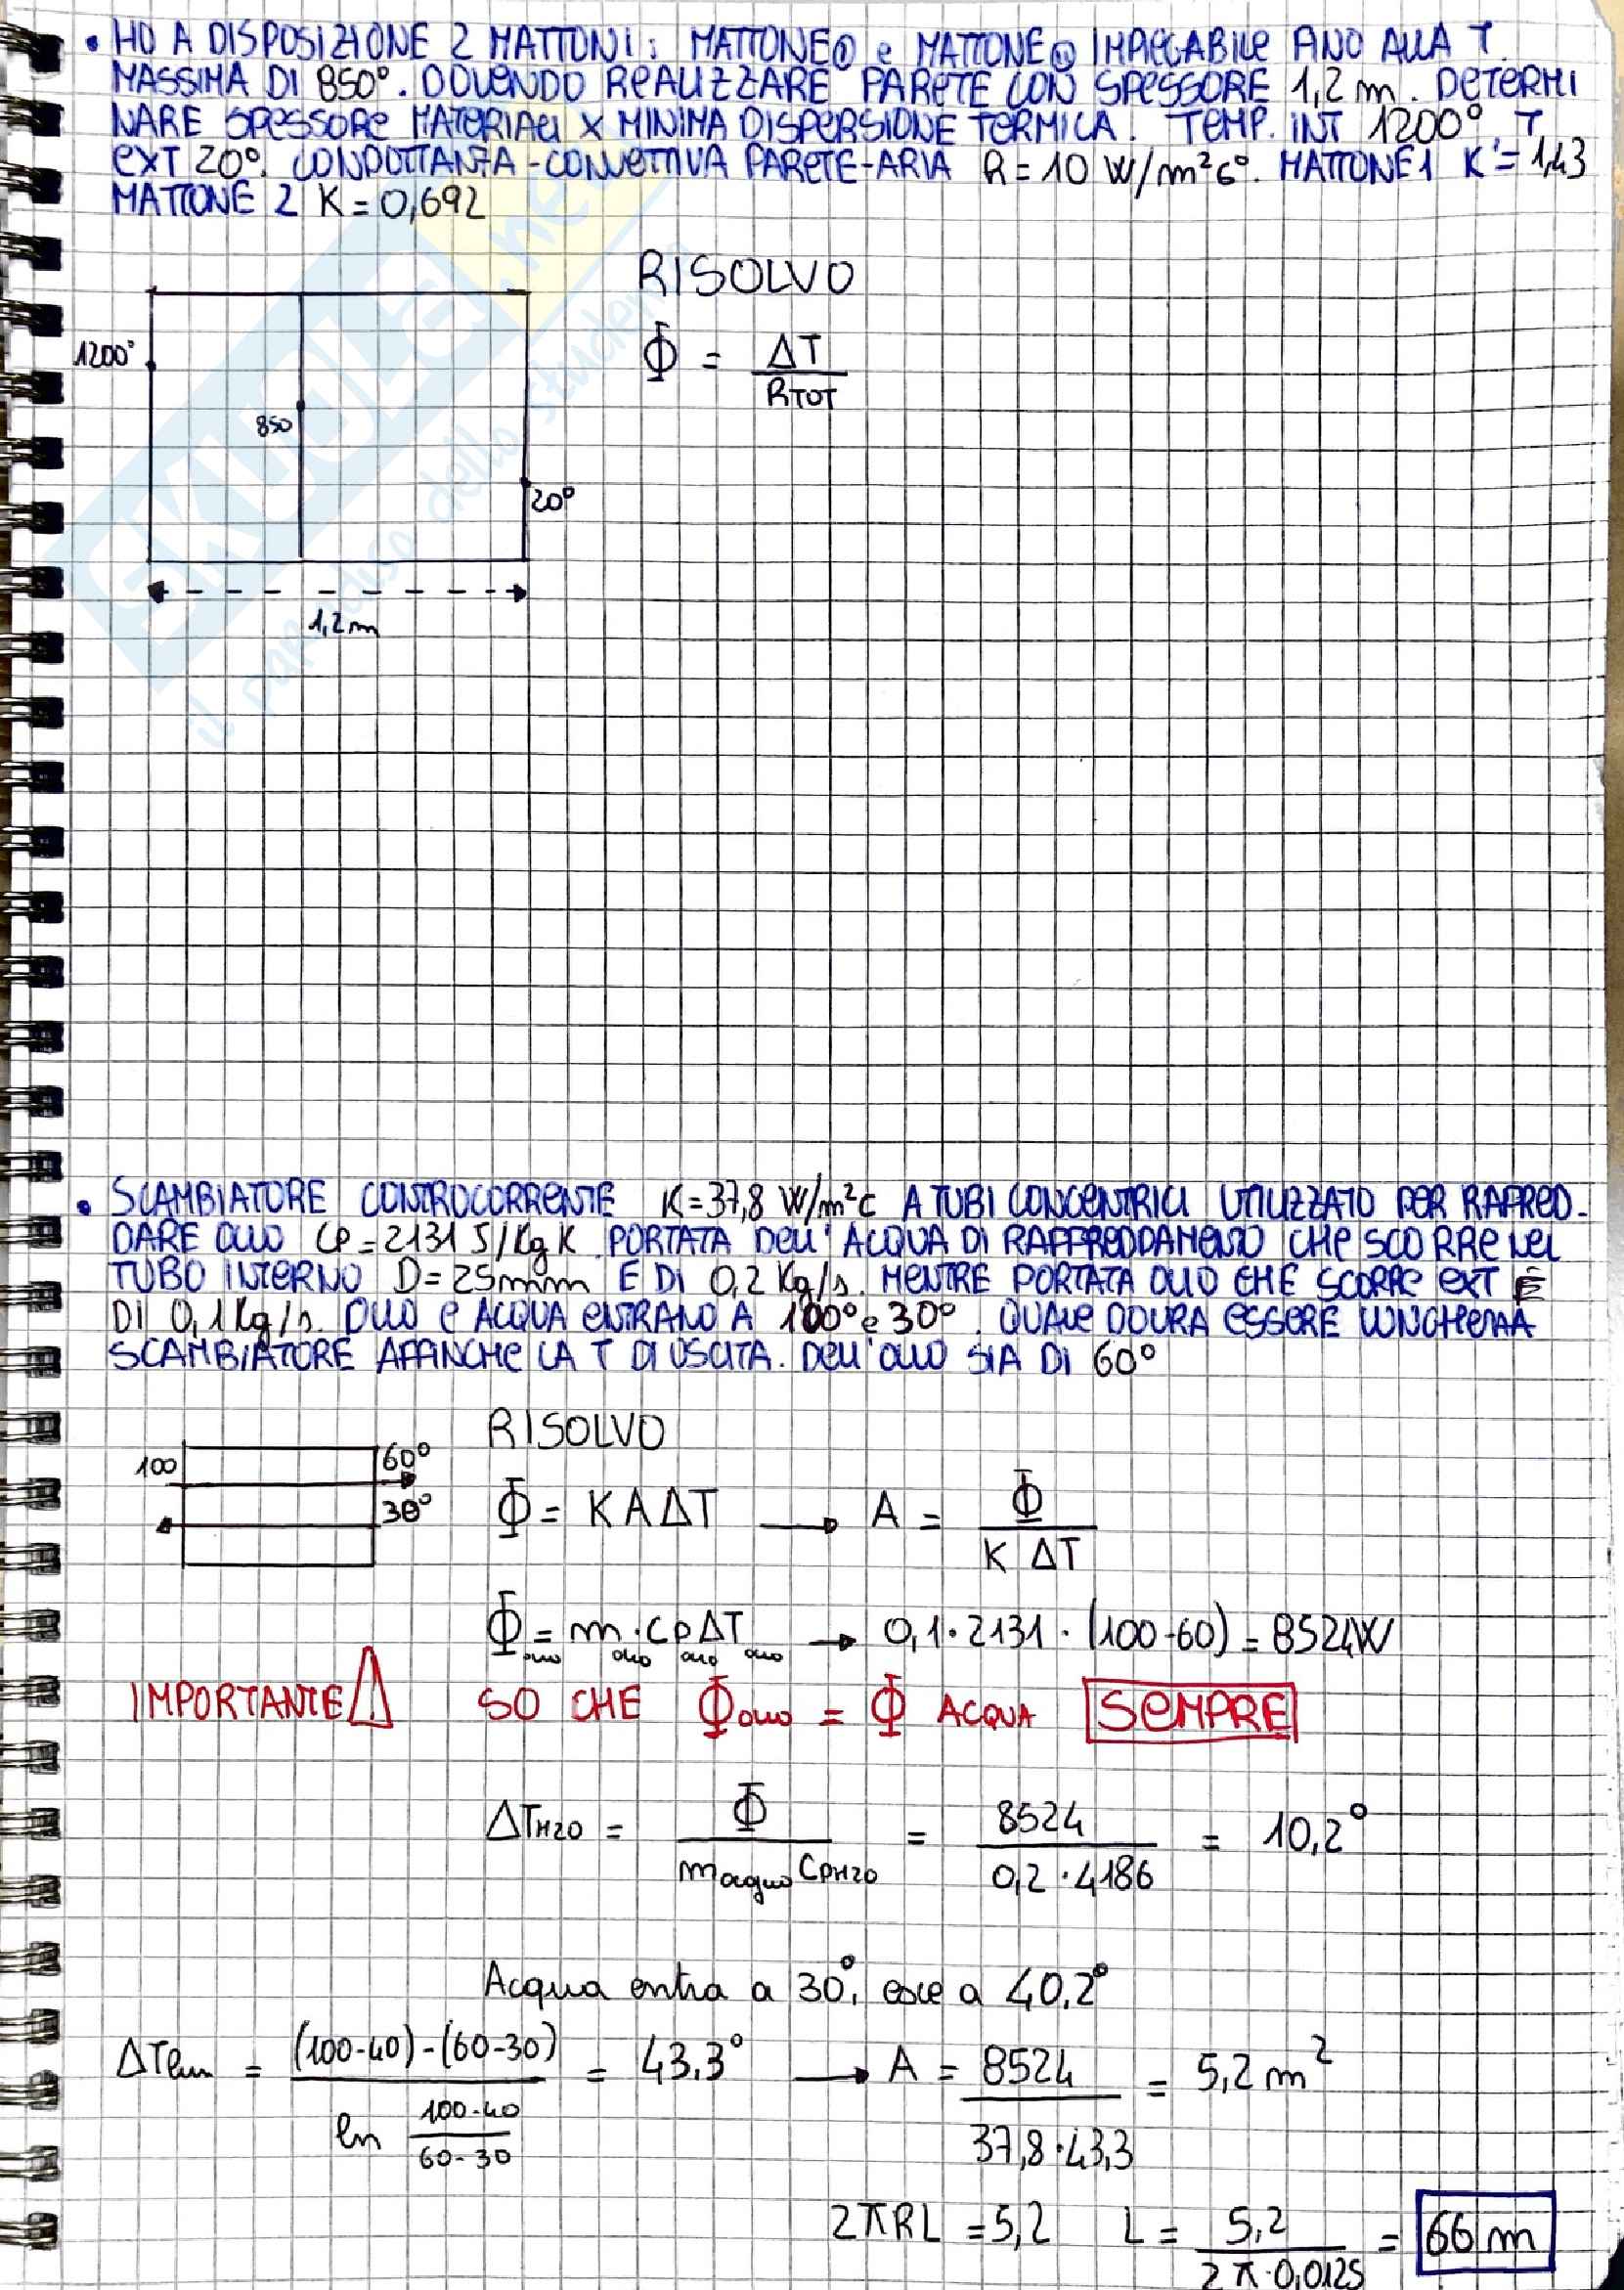 • HO A DISPOSIZIONE 2 MATTONI: MATTONE① e MATTONE② IMPIEGABILE FINO ALLA T
MASSIMA DI 850°. DOVENDO REALIZZARE PARETE CON SPESSORE 1,2 m. DETERMI
NARE SPESSORE MATERIALI X MINIMA DISPERSIONE TERMICA. TEMP. INT 1200° T
EXT 20°. CONDUTTANZA-CONVETTIVA PARETE-ARIA R = 10 W/m²c°. MATTONE1 K = 1,43
MATTONE 2 K = 0,692
RISOLVO
Φ = ΔT / RTOT
1200°
850
20°
1,2 m
SKUOLA.net
il paradiso dello studente
• SCAMBIATORE CONTROCORRENTE K = 37,8 W/m²c A TUBI CONCENTRICI UTILIZZATO PER RAFFRED-
DARE OLIO CP = 2131 J/Kg K. PORTATA DELL'ACQUA DI RAFFREDDAMENTO CHE SCORRE NEL
TUBO INTERNO D = 25mm E DI 0,2 Kg/s. MENTRE PORTATA OLIO CHE SCORRE EXT È
DI 0,1 Kg/s. OLIO e ACQUA ENTRANO A 100° e 30°. QUALE DOVRA ESSERE LUNGHEZZA
SCAMBIATORE AFFINCHE LA T DI USCITA. DELL'OLIO SIA DI 60°
RISOLVO
100 60°
30°
Φ = K A ΔT → A = Φ / K ΔT
Φolio = molio · CPolio ΔTolio → 0,1 · 2131 · (100-60) = 8524W
IMPORTANTE SO CHE Φolio = Φ ACQUA SEMPRE
ΔTH2O = Φ / macqua CPH2O = 8524 / 0,2 · 4186 = 10,2°
Acqua entra a 30°, esce a 40,2°
ΔTlm = (100-40) - (60-30) / ln 100-40 / 60-30 = 43,3° → A = 8524 / 37,8 · 43,3 = 5,2 m²
2πRL = 5,2 L = 5,2 / 2π · 0,0125 = 66 m